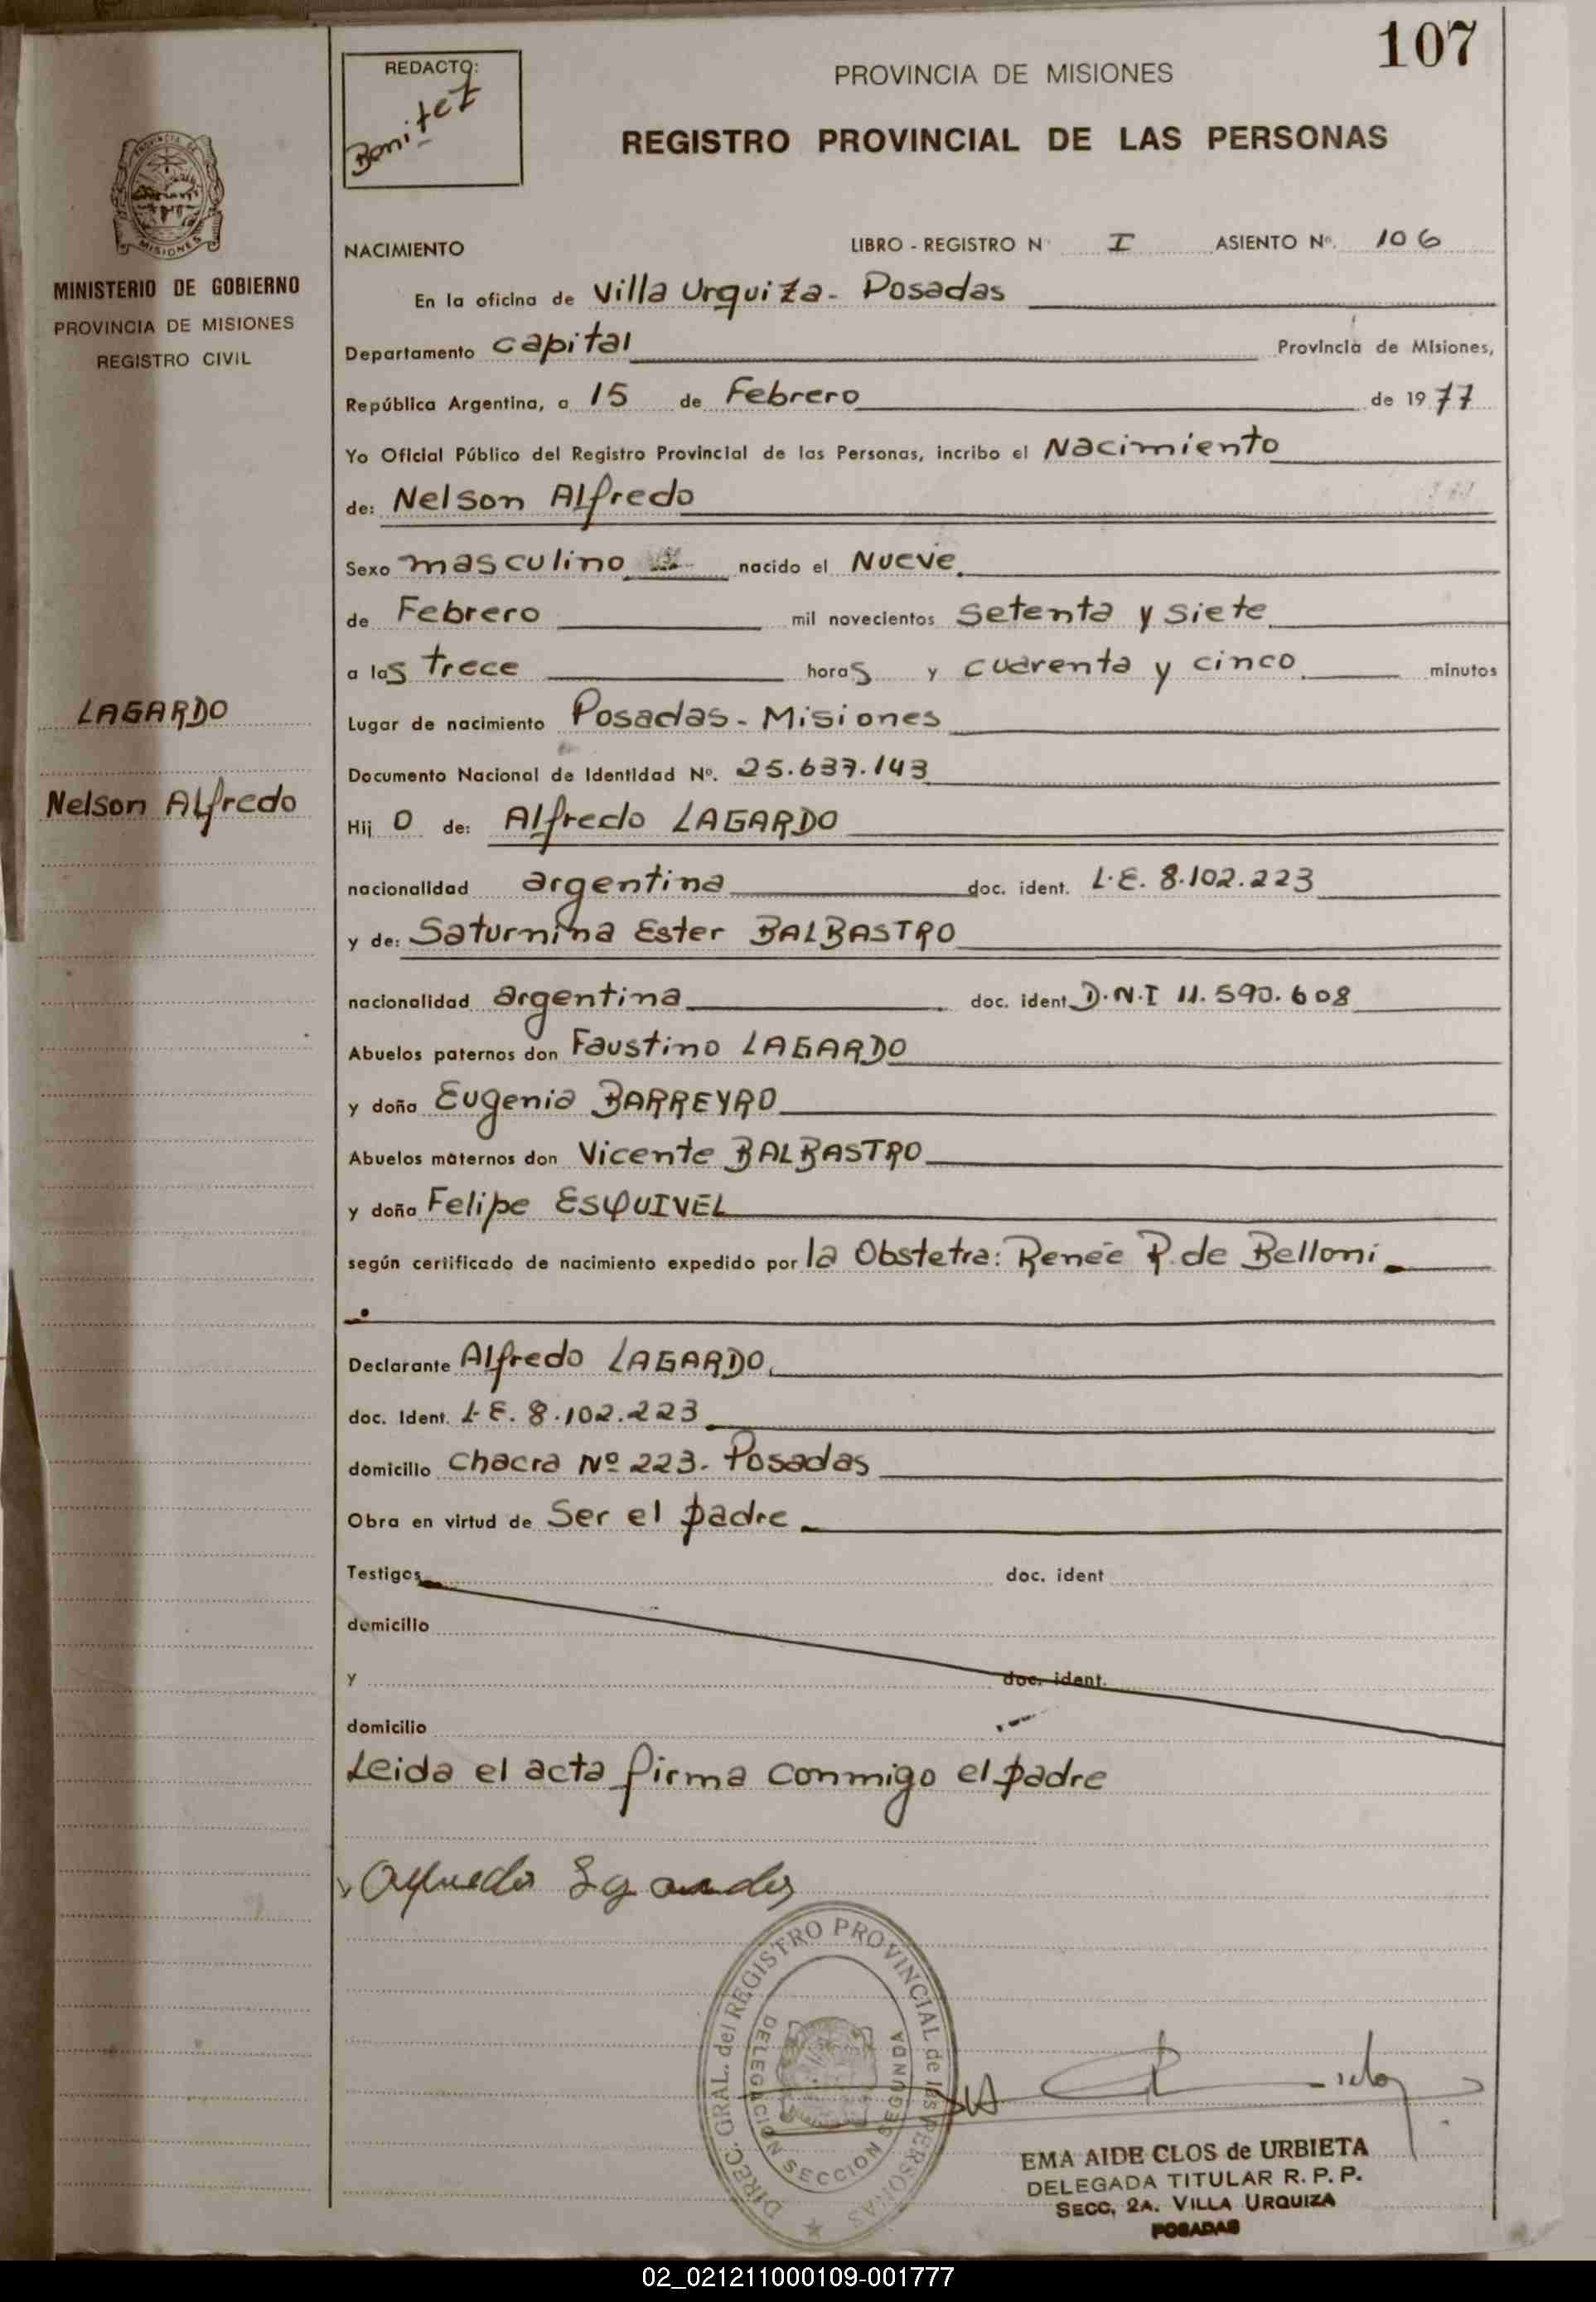 107
REDACTO:
Benitez
PROVINCIA DE MISIONES
REGISTRO PROVINCIAL DE LAS PERSONAS
MISIONES
MINISTERIO DE GOBIERNO
PROVINCIA DE MISIONES
REGISTRO CIVIL
LAGARDO
Nelson Alfredo
NACIMIENTO LIBRO - REGISTRO N° I ASIENTO N°. 106
En la oficina de Villa Urquiza - Posadas
Departamento Capital Provincia de Misiones,
República Argentina, a 15 de Febrero de 1977
Yo Oficial Público del Registro Provincial de las Personas, incribo el Nacimiento
de: Nelson Alfredo
Sexo masculino nacido el Nueve
de Febrero mil novecientos setenta y siete
a las trece horas y cuarenta y cinco minutos
Lugar de nacimiento Posadas - Misiones
Documento Nacional de Identidad N°. 25.637.143
Hij o de: Alfredo LAGARDO
nacionalidad argentina doc. ident. L.E. 8.102.223
y de: Saturnina Ester BALBASTRO
nacionalidad argentina doc. ident. D.N.I 11.590.608
Abuelos paternos don Faustino LAGARDO
y doña Eugenia BARREYRO
Abuelos maternos don Vicente BALBASTRO
y doña Felipe ESQUIVEL
según certificado de nacimiento expedido por la Obstetra: Renée R. de Belloni
Declarante Alfredo LAGARDO
doc. Ident. L.E. 8.102.223
domicilio Chacra Nº 223 - Posadas
Obra en virtud de Ser el padre
Testigos doc. ident
domicilio
y doc. ident.
domicilio
Leida el acta firma conmigo el padre
DIREC. GRAL. del REGISTRO PROVINCIAL de las PERSONAS
DELEGACION SECCION SEGUNDA
EMA AIDE CLOS de URBIETA
DELEGADA TITULAR R. P. P.
SECC. 2A. VILLA URQUIZA
POSADAS
02_021211000109-001777